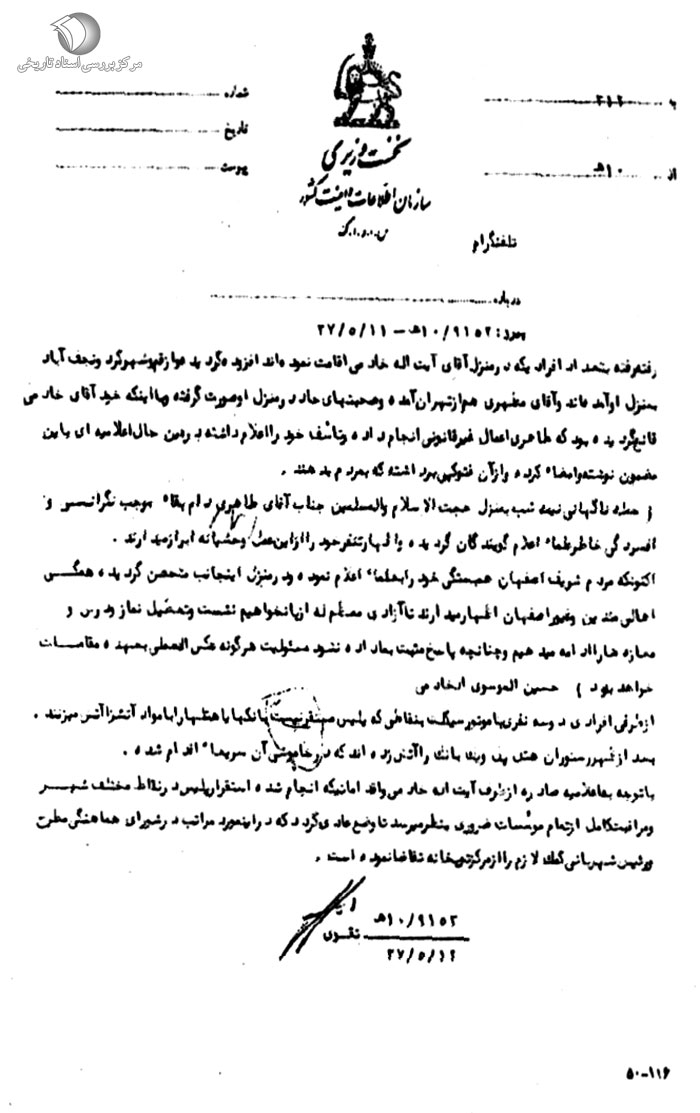 مرکز بررسی اسناد تاریخی
به ۳۱۲
از ۱۰هـ
شماره
تاریخ
پیوست
نخست وزیری
سازمان اطلاعات و امنیت کشور
تلفنگرام
درباره
۱۰/۹۱۵۲هـ - ۳۷/۵/۱۱
رفته رفته بتعداد افرادیکه در منزل آقای آیت اله خادمی اقامت نموده اند افزوده گردیده و از قمشهر کرد ونجف آباد
بمنزل او آمده اند و آقای مطهری هم از تهران آمده وصحبتهای حاد در منزل او صورت گرفته و با اینکه خود آقای خادمی
قانع گردیده بود که طاهری اعمال غیرقانونی انجام داده وتأسف خود را اعلام داشته در عین حال اعلامیه ای باین
مضمون نوشته وامضاء کرده و از آن فتوکپی برداشته که بمردم بدهند .
( حمله ناگهانی نیمه شب بمنزل حجت الاسلام والمسلمین جناب آقای طاهری دام بقاه موجب نگرانی و
افسردگی خاطر علماء اعلام گویندگان گردیده و اظهار تنفر خود را از این عمل وحشیانه ابراز میدارند .
اکنون که مردم شریف اصفهان همبستگی خود را بعلماء اعلام نموده ودر منزل اینجانب متحصن گردیده همگی
اهالی متدین وغیور اصفهان اظهار میدارند تا آزادی معظم له از پا نخواهیم نشست وتعطیل نماز ودرس و
مغازه ها را ادامه میدهیم وچنانچه پاسخ مثبت بما داده نشود مسئولیت هرگونه عکس العملی بعهده مقامات
خواهد بود ) حسین الموسوی الخادمی
از طرفی افرادی دو سه نفری با موتورسیکلت بنقاطی که پلیس مستقر نیست بانکها یا هتلها را با مواد آتشزا آتش میزنند .
بعد از ظهر رستوران هتل پل ویک بانک را آتش زده اند که در خاموشی آن سریعاً اقدام شده .
با توجه به اعلامیه صادره از طرف آیت اله خادمی و اقداماتیکه انجام شده استقرار پلیس در نقاط مختلف شهر
ومراقبت کامل از تمام مؤسسات ضروری بنظر میرسد تا وضع عادی گردد که در اینمورد مراتب در شورای هماهنگی مطرح
ورئیس شهربانی کمک لازم را از مرکز توپخانه تقاضا نموده است .
۱۰/۹۱۵۲هـ
تقوی
۳۷/۵/۱۲
۵۰-۱۱۶